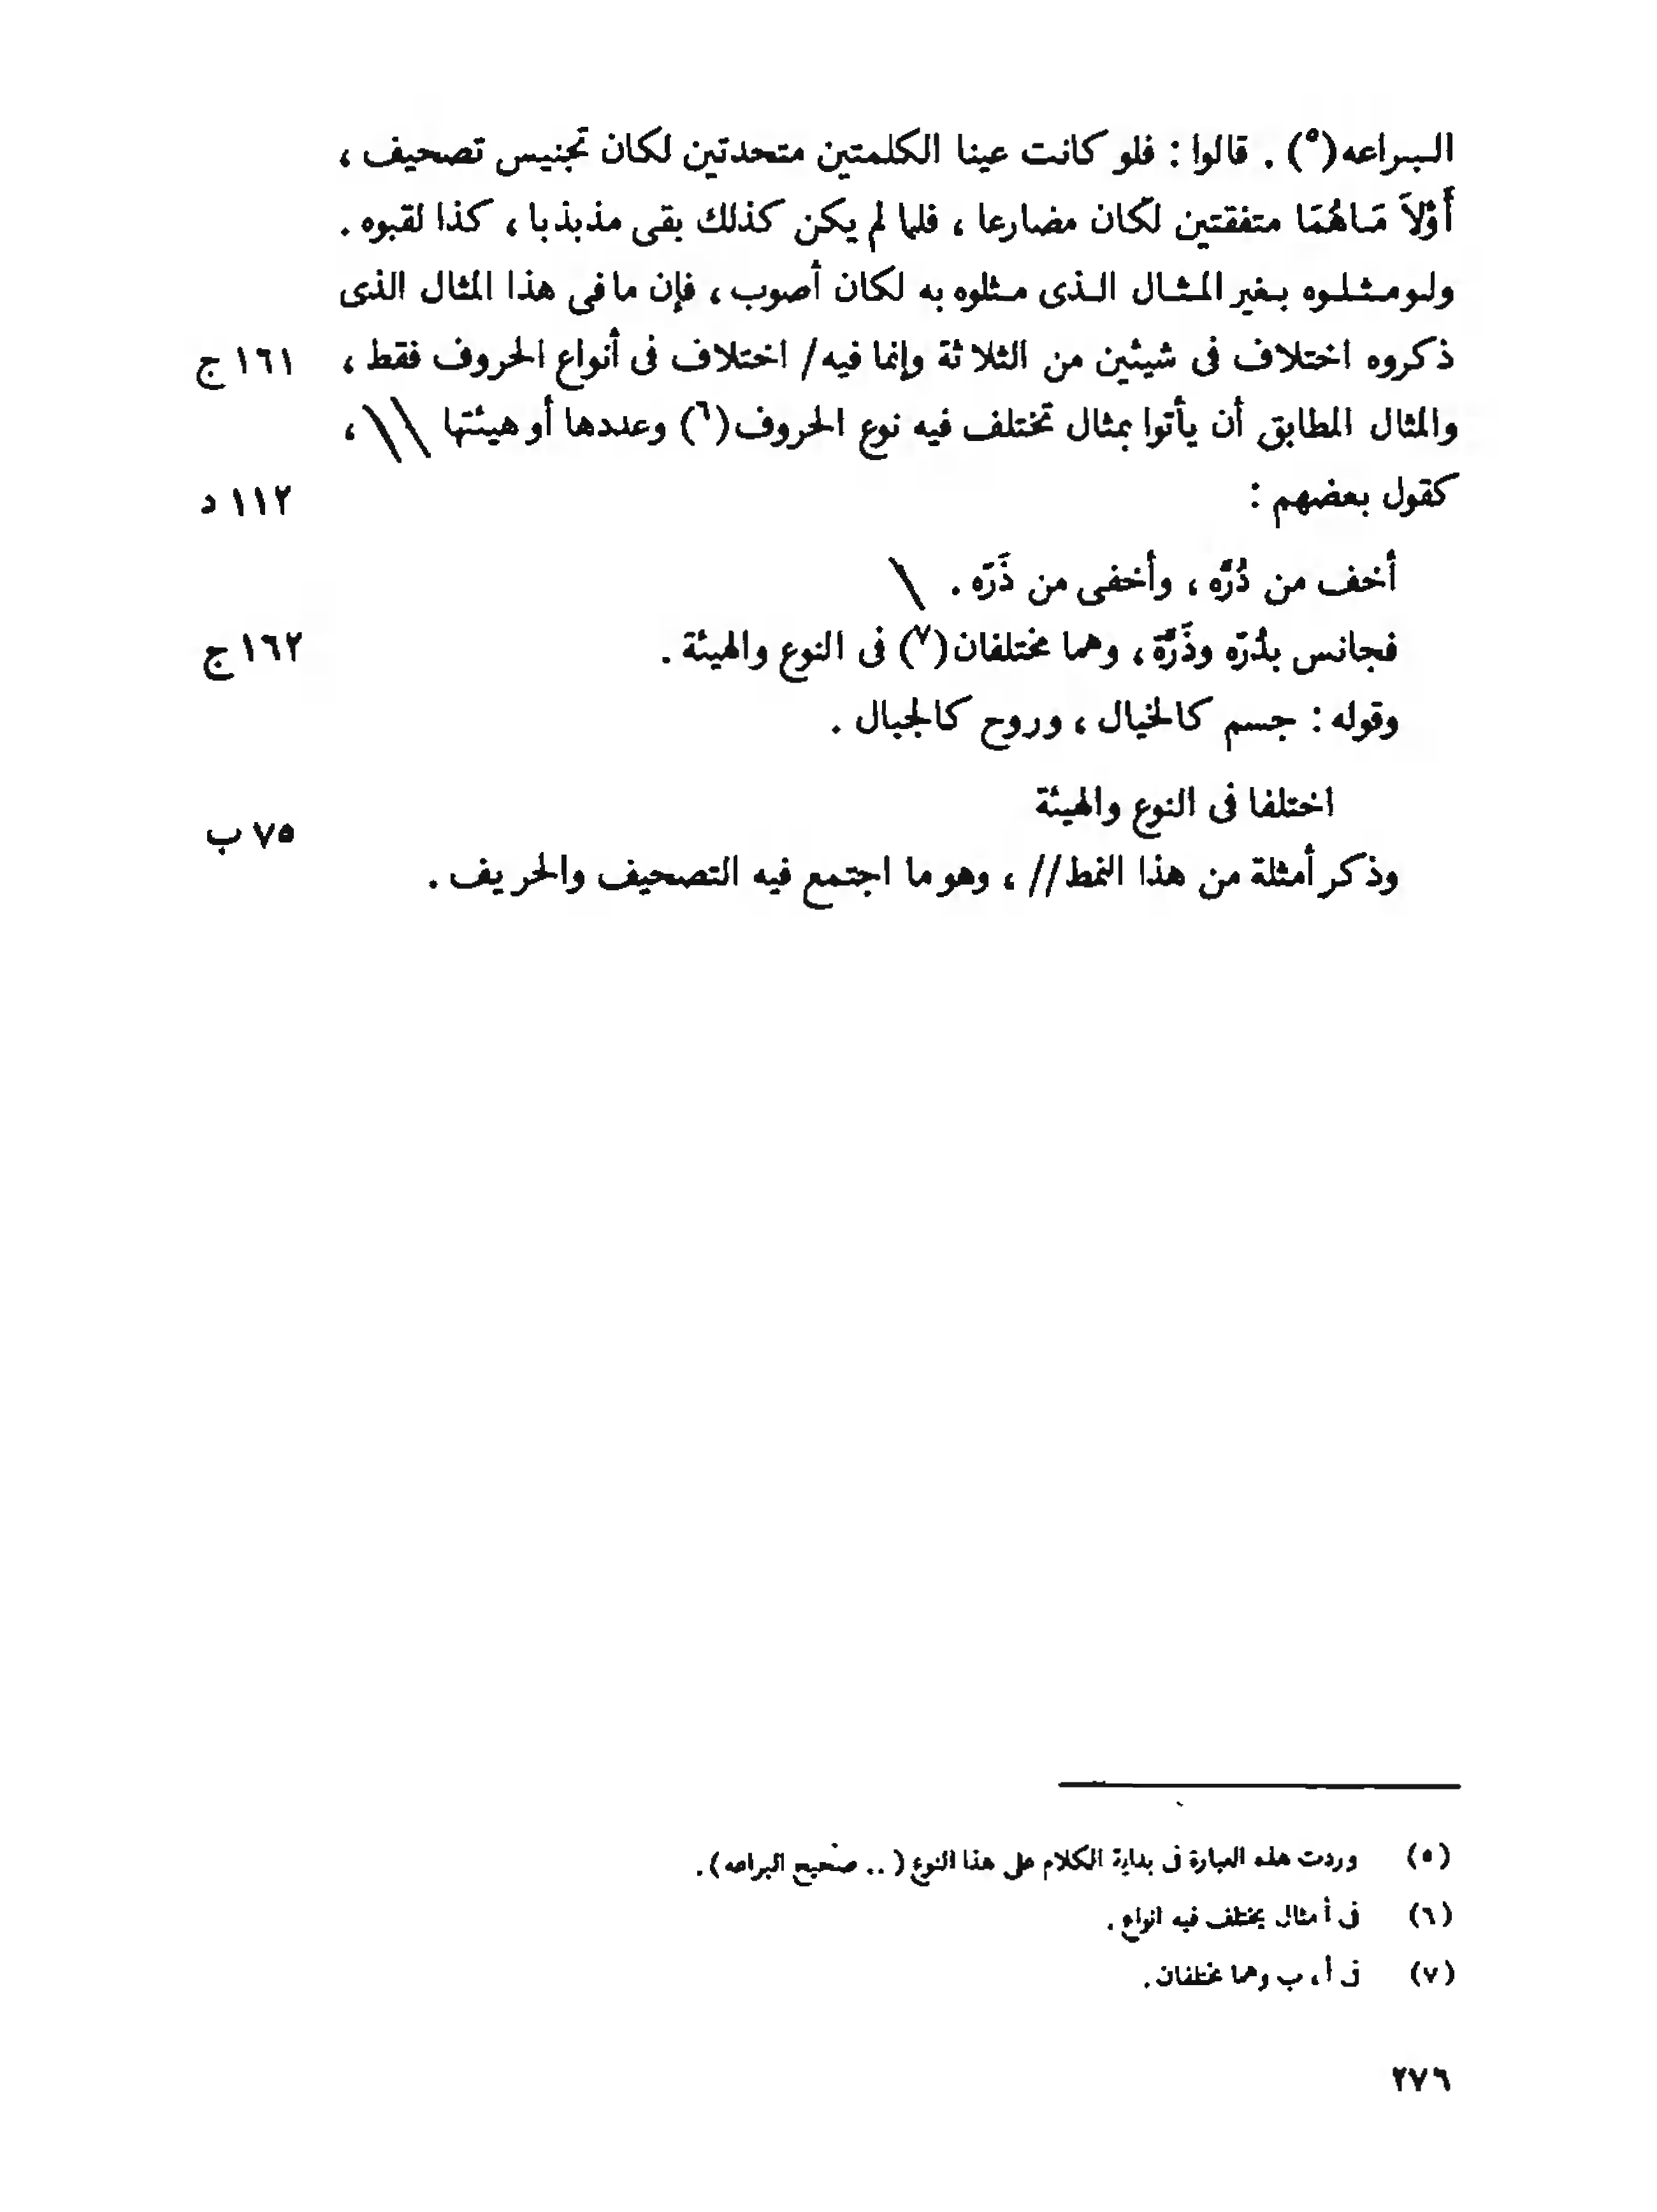 البراعه(٥) . قالوا : فلو كانت عينا الكلمتين متحدتين لكان تجنيس تصحيف ،
أَوْلاَ مَاهُمَا متفقتين لكان مضارعا ، فلما لم يكن كذلك بقى مذبذبا ، كذا لقبوه .
ولو مثلوه بغير المثال الذى مثلوه به لكان أصوب ، فإن ما فى هذا المثال الذى
ذكروه اختلاف فى شيئين من الثلاثة وإنما فيه / اختلاف فى أنواع الحروف فقط ، ١٦١ ج
والمثال المطابق أن يأتوا بمثال تختلف فيه نوع الحروف(٦) وعددها أو هيئتها \\ ،
كقول بعضهم : ١١٢ د
أخف من دُرَّه ، وأخفى من ذَرّه . \
فجانس بدُرّه وذَرَّة ، وهما مختلفان(٧) فى النوع والهيئة . ١٦٢ ج
وقوله : جسم كالخيال ، وروح كالجبال .
اختلفا فى النوع والهيئة
٧٥ ب
وذكر أمثلة من هذا النمط // ، وهو ما اجتمع فيه التصحيف والحريف .
(٥) وردت هذه العبارة فى بداية الكلام على هذا النوع ( .. صحيح البراعه ) .
(٦) فى أ مثال يختلف فيه انواع .
(٧) فى أ ، ب وهما مختلفان .
٢٧٦